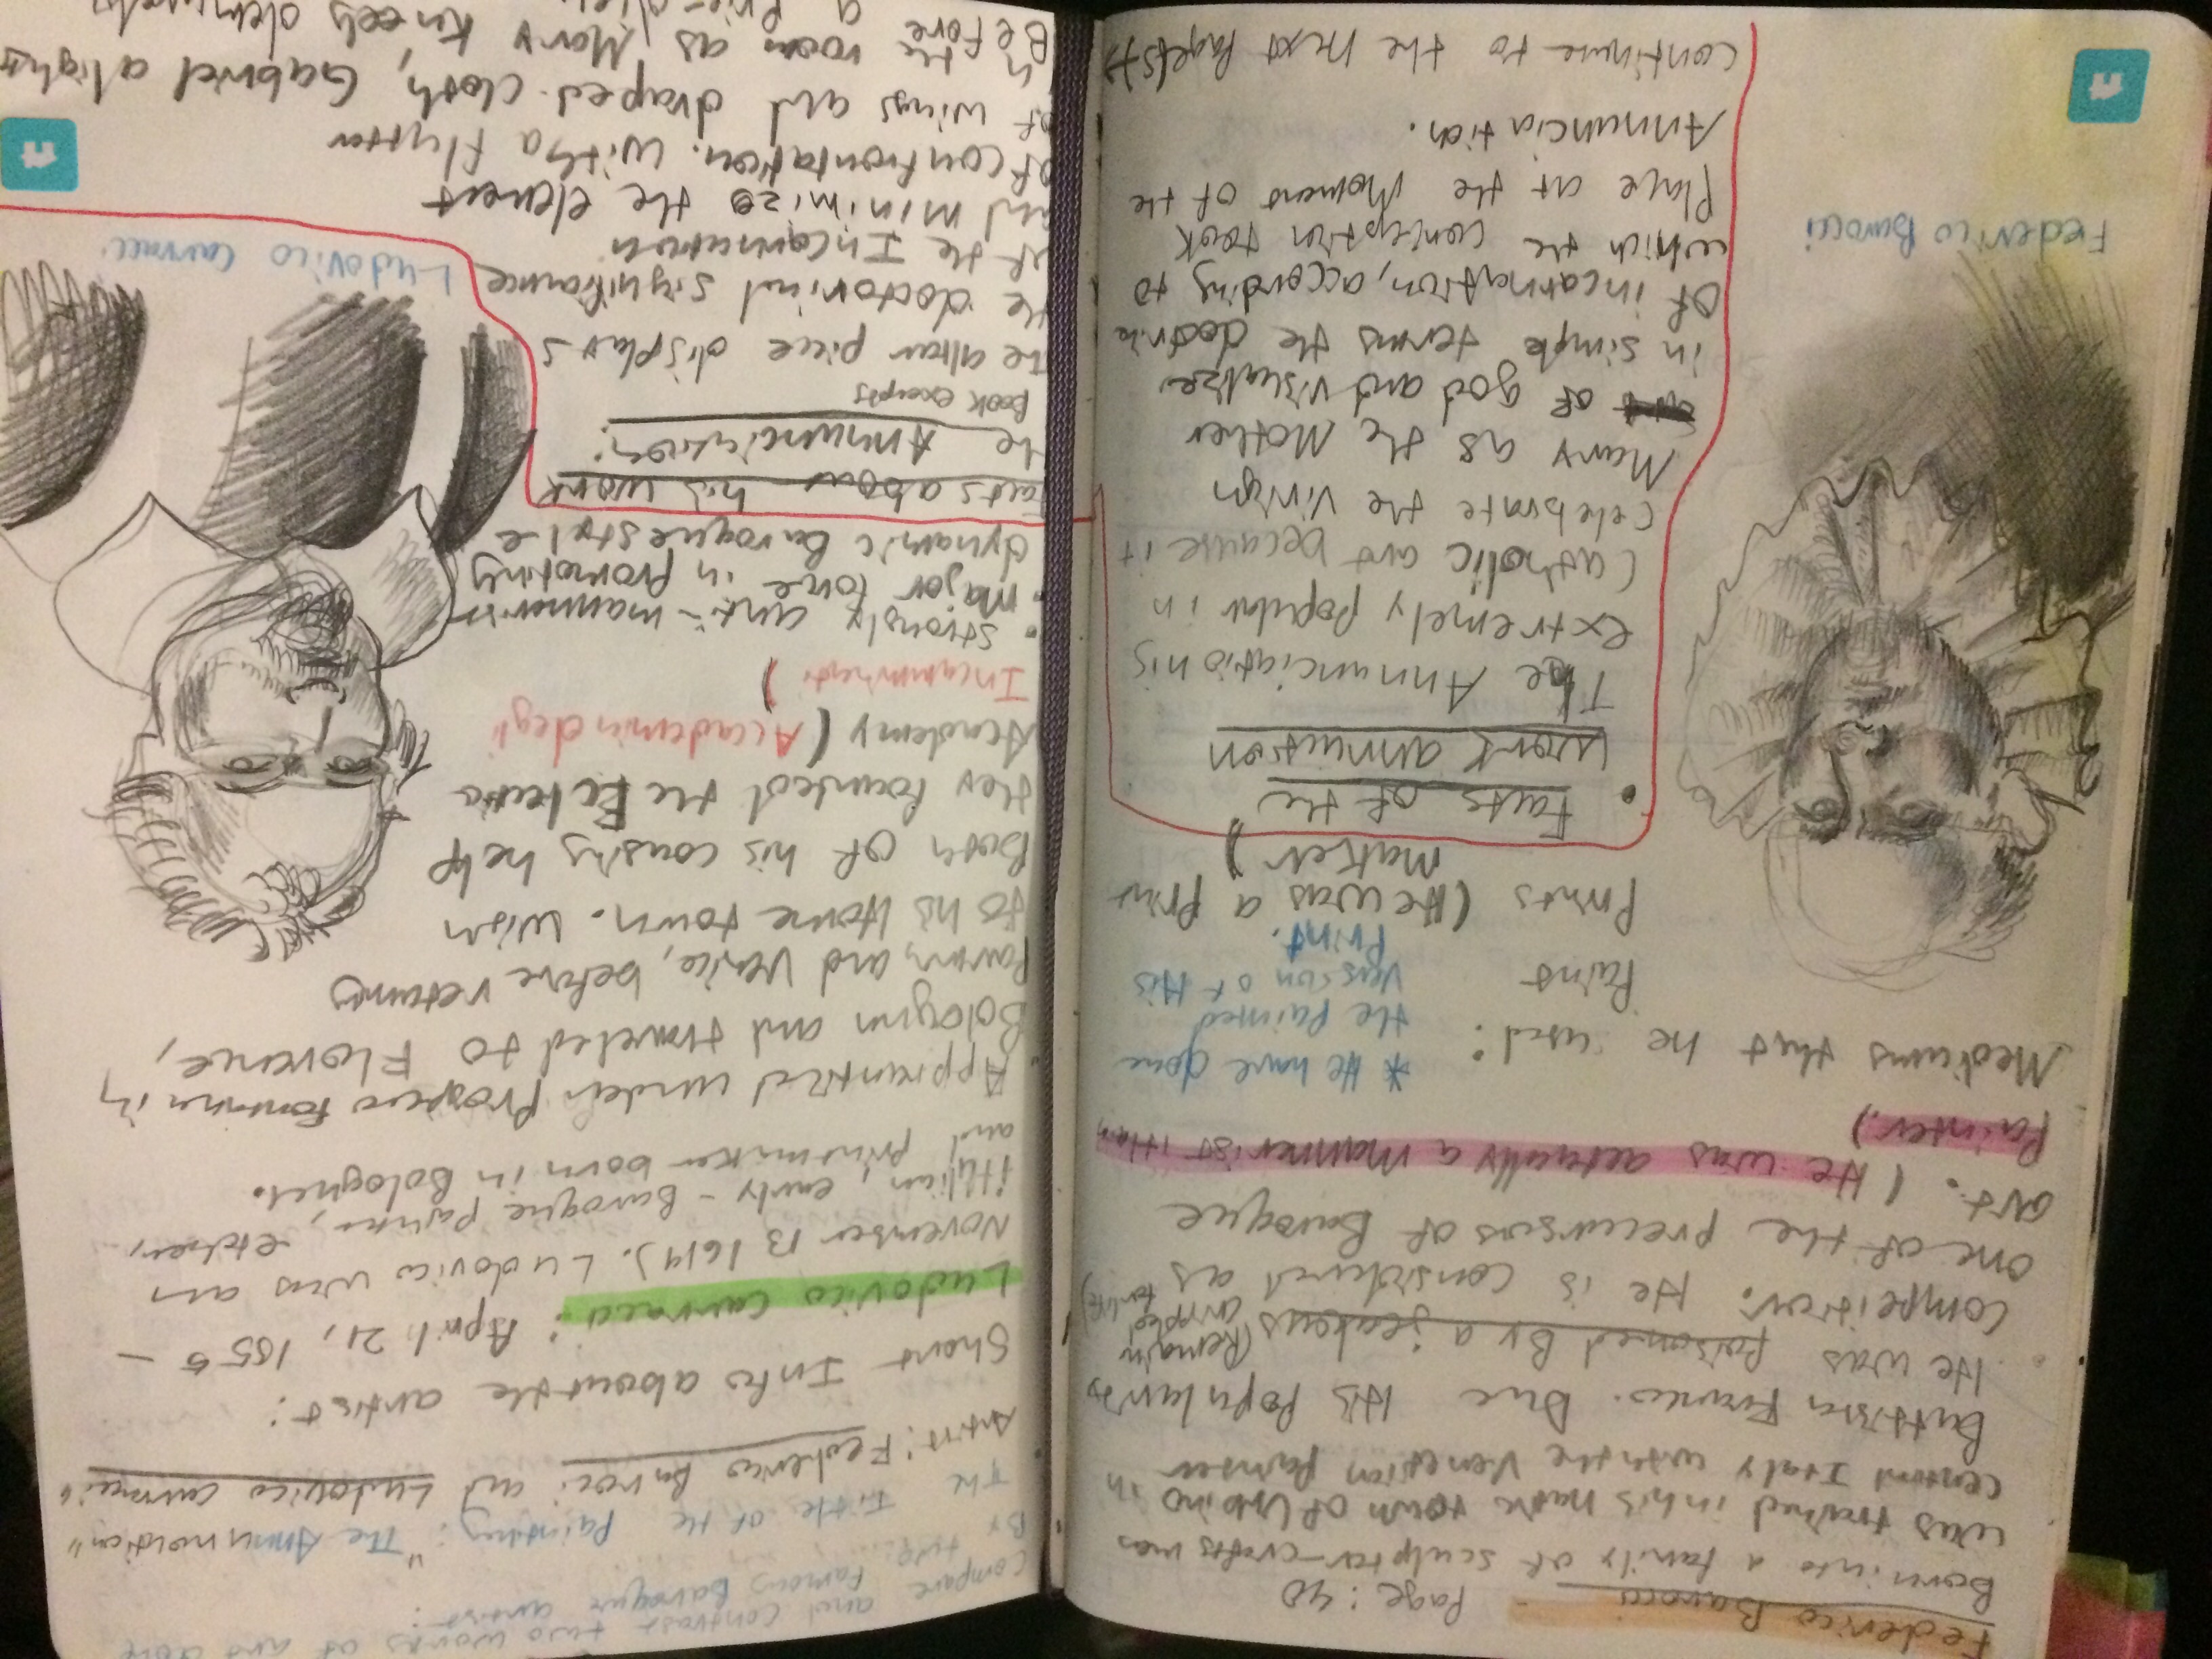 Federico Barocci Page: 40
Born into a family of sculptor-crafts men
was trained in his native town of Urbino in
central Italy with the Venetian Painter
Battista Franco. Due His Popularity
He was poisoned By a jealous (Remain
crippled
for life)
competitor. He is considered as
one of the precursors of Baroque
art. (He was actually a mannerist
Painter.)
Mediums that he used:
Paint
Prints (He was a Print
Maker)
* He have done
the Painted
Version of His
Print.
• Facts of the
work annution
The Annunciation is
extremely Popular in
Catholic art because it
celebrate the Virign
Mary as the Mother
of god and visualize
in simple terms the doctrine
Of incarnation, according to
which the conception took
Place at the moment of the
Annunciation.
continue to the next Page
Federico Barocci
Compare and contrast two works of art done
By two famous Baroque artist:
The Tittle of the Painting: "The Annunotion"
Artit: Federico Barroci and Ludovico carracci
Short Info about the artist:
Ludovico carracci: April 21, 1555 —
November 13 1619). Ludovico was an
itilian early - Baroque Painter, etcher
and printmaker born in Bologna.
• Apprenticed under Prospero Fontana in
Bologna and traveled to Florence,
Parma, and Venice, before returning
to his Home town. With
Both Of his cousins help
They founded the Eclectic
Academy (Accademia degli
Incamminati)
• strongly anti-mannerism
• Major force in Promoting
dynamic Baroque style
Facts about his work
the Annunciation:
Book excerpts
The altar piece displays
the doctorinal significance
of the Incarnation
and minimize the element
of confrontation. With a flutter
of wings and draped cloth, Gabriel alights
in the room as Mary kneels demurely
Before a
Ludovico Carracc